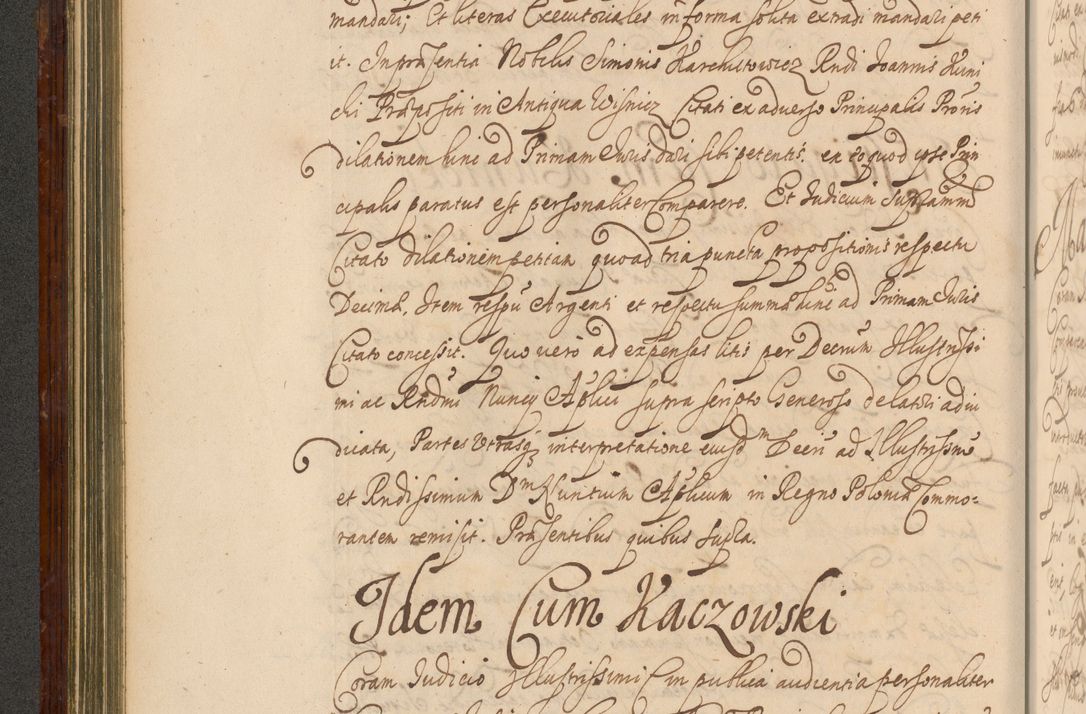 mandari; Et literas Executoriales in forma solita extradi mandari peti
it. In præsentia Nobilis Simonis Karchutowicz Rndi Joannis Kuni
cki Præpositi in Antiqua Wisnicz Citati ex adverso Principalis Prōris
dilationem hinc ad Primam Juris dari sibi petentis. ex eo quod ipse Prin
cipalis paratus est personaliter Comparere. Et Judicium
Citato dilationem petitam quoad tria puncta propositionis respectu
Decimæ. Item respū Argenti et respectu summæ hinc ad Primam Juris
Citato concessit. Quo vero ad expensas litis per Decrum Illustrissi
mi ac Rndmi Nuncÿ Aplici supra scripto Generoso delatori adiu
dicata, Partes Utrasq interpretatione eiusdm Decri ad Illustrissmū
et Rndissimum Dm Nuntium Aplicum in Regno Poloniæ Commo=
rantem remisit. Præsentibus quibus supra.
Idem Cum Kaczowski
Coram Judicio Illustrissimi C in publica audientia personaliter